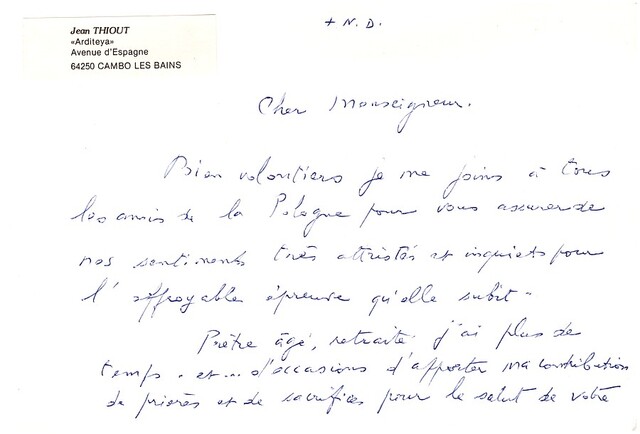 Jean THIOUT
«Arditeya»
Avenue d'Espagne
64250 CAMBO LES BAINS
+ N. D.
Cher Monseigneur.
Bien volontiers je me joins à tous
les amis de la Pologne pour vous assurer de
nos sentiments très attristés et inquiets pour
l'effroyable épreuve qu'elle subit -
Prêtre âgé, retraité, j'ai plus de
temps. et... d'occasions d'apporter ma contribution
de prières et de sacrifices pour le salut de votre